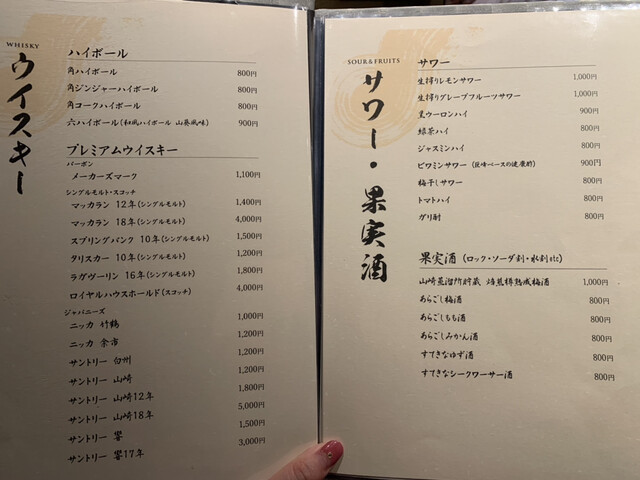 WHISKY
ウイスキー
ハイボール
角ハイボール 800円
角ジンジャーハイボール 800円
角コークハイボール 800円
六ハイボール(和風ハイボール 山葵風味) 900円
プレミアムウイスキー
バーボン
メーカーズマーク 1,100円
シングルモルト・スコッチ
マッカラン 12年(シングルモルト) 1,400円
マッカラン 18年(シングルモルト) 4,000円
スプリングバンク 10年(シングルモルト) 1,500円
タリスカー 10年(シングルモルト) 1,200円
ラグヴーリン 16年(シングルモルト) 1,800円
ロイヤルハウスホールド(スコッチ) 4,000円
ジャパニーズ
ニッカ 竹鶴 1,000円
ニッカ 余市 1,200円
サントリー 白州 1,200円
サントリー 山崎 1,200円
サントリー 山崎12年 1,800円
サントリー 山崎18年 5,000円
サントリー 響 1,500円
サントリー 響17年 3,000円
SOUR&FRUITS
サワー・果実酒
サワー
生搾りレモンサワー 1,000円
生搾りグレープフルーツサワー 1,000円
黒ウーロンハイ 900円
緑茶ハイ 800円
ジャスミンハイ 800円
ビワミンサワー(巨峰ベースの健康酢) 900円
梅干しサワー 800円
トマトハイ 800円
ガリ酎 800円
果実酒(ロック・ソーダ割・水割etc)
山崎蒸溜所貯蔵 焙煎樽熟成梅酒 1,000円
あらごし梅酒 800円
あらごしもも酒 800円
あらごしみかん酒 800円
すてきなゆず酒 800円
すてきなシークワーサー酒 800円